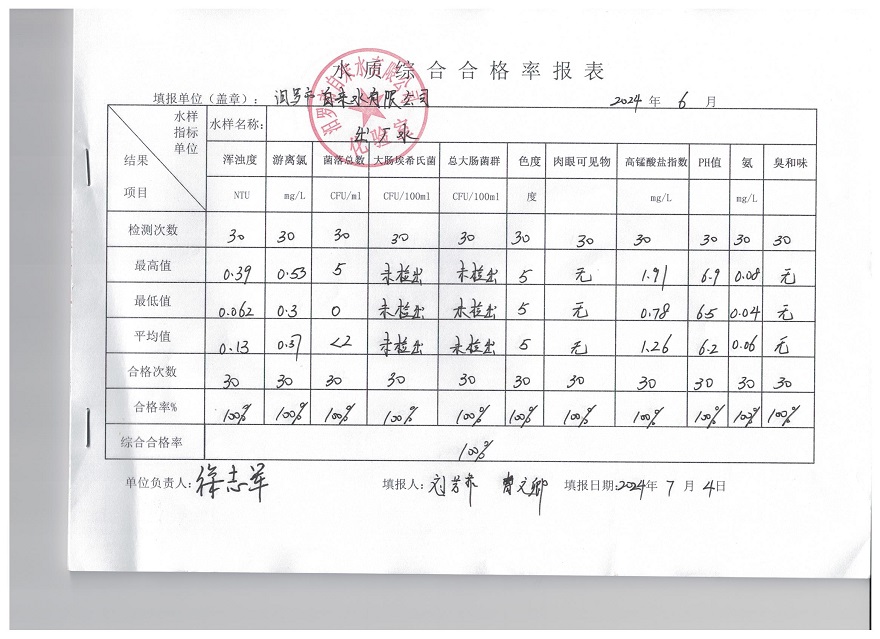 水质综合合格率报表
填报单位（盖章）：汨罗市自来水有限公司 2024 年 6 月
水样指标单位 结果 项目 水样名称： 出厂水
浑浊度 游离氯 菌落总数 大肠埃希氏菌 总大肠菌群 色度 肉眼可见物 高锰酸盐指数 PH值 氨 臭和味
NTU mg/L CFU/ml CFU/100ml CFU/100ml 度 mg/L mg/L
检测次数 30 30 30 30 30 30 30 30 30 30 30
最高值 0.39 0.53 5 未检出 未检出 5 无 1.91 6.9 0.08 无
最低值 0.062 0.3 0 未检出 未检出 5 无 0.78 6.5 0.04 无
平均值 0.13 0.37 <2 未检出 未检出 5 无 1.26 6.2 0.06 无
合格次数 30 30 30 30 30 30 30 30 30 30 30
合格率% 100% 100% 100% 100% 100% 100% 100% 100% 100% 100% 100%
综合合格率 100%
单位负责人：徐志军 填报人： 填报日期:2024年 7 月 4日
汨罗市自来水有限公司
化验室